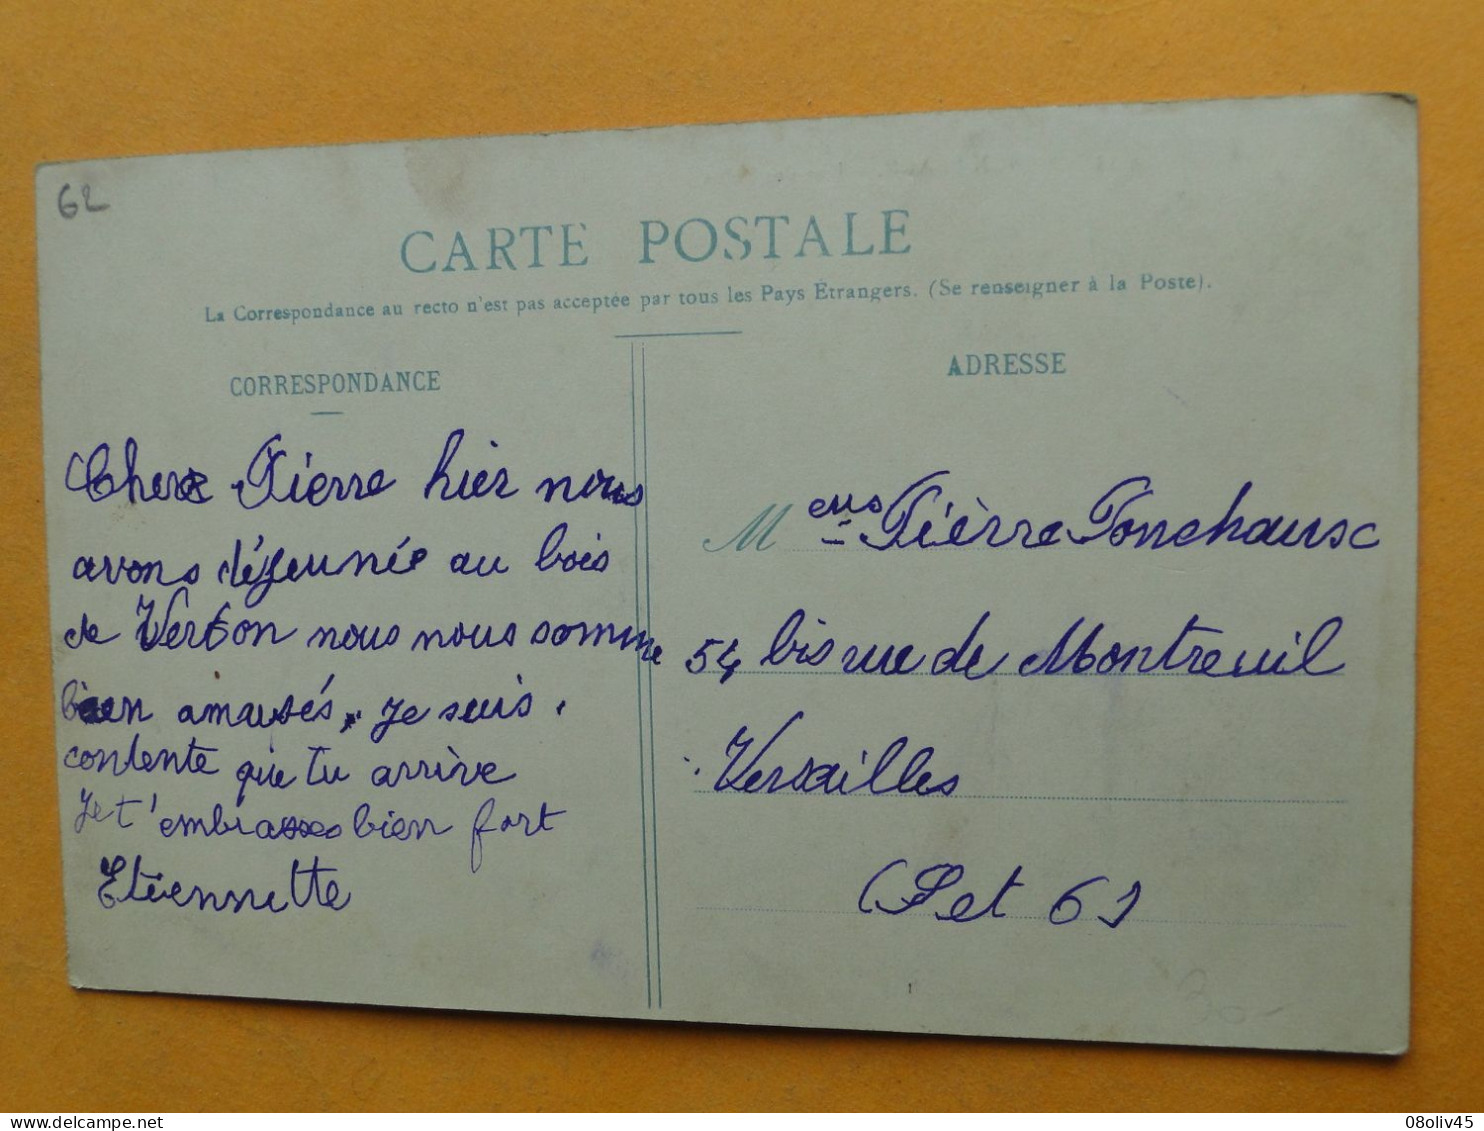 62
CARTE POSTALE
La Correspondance au recto n'est pas acceptée par tous les Pays Étrangers. (Se renseigner à la Poste).
CORRESPONDANCE
Cher Pierre hier nous
avons déjeunée au bois
de Verton nous nous somme
bien amusés, je suis
contente que tu arrive
Je t'embrasses bien fort
Etiennette
ADRESSE
Meus Pièrre Ponchausc
54 bis rue de Montreuil
Versailles
(Set
delcampe.net
08oliv45